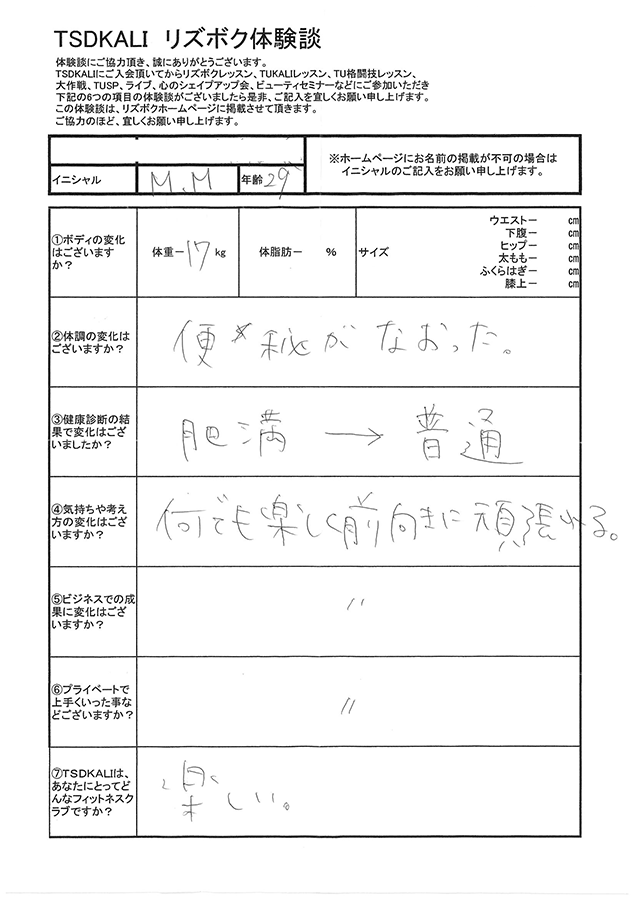 TSDKALI リズボク体験談
体験談にご協力頂き、誠にありがとうございます。
TSDKALIにご入会頂いてからリズボクレッスン、TUKALIレッスン、TU格闘技レッスン、
大作戦、TUSP、ライブ、心のシェイプアップ会、ビューティセミナーなどにご参加いただき
下記の6つの項目の体験談がございましたら是非、ご記入を宜しくお願い申し上げます。
この体験談は、リズボクホームページに掲載させて頂きます。
ご協力のほど、宜しくお願い申し上げます。
※ホームページにお名前の掲載が不可の場合は
イニシャルのご記入をお願い申し上げます。
イニシャル M.M 年齢 29
①ボディの変化
はございます
か？
体重ー17kg 体脂肪ー %
サイズ
ウエストー cm
下腹ー cm
ヒップー cm
太ももー cm
ふくらはぎー cm
膝上ー cm
②体調の変化は
ございますか？
便秘がなおった。
③健康診断の結
果で変化はござ
いましたか？
肥満 → 普通
④気持ちや考え
方の変化はござ
いますか？
何でも楽しく前向きに頑張れる。
⑤ビジネスでの成
果に変化はござ
いますか？
〃
⑥プライベートで
上手くいった事な
どございますか？
〃
⑦TSDKALIは、
あなたにとってど
んなフィットネスク
ラブですか？
楽しい。